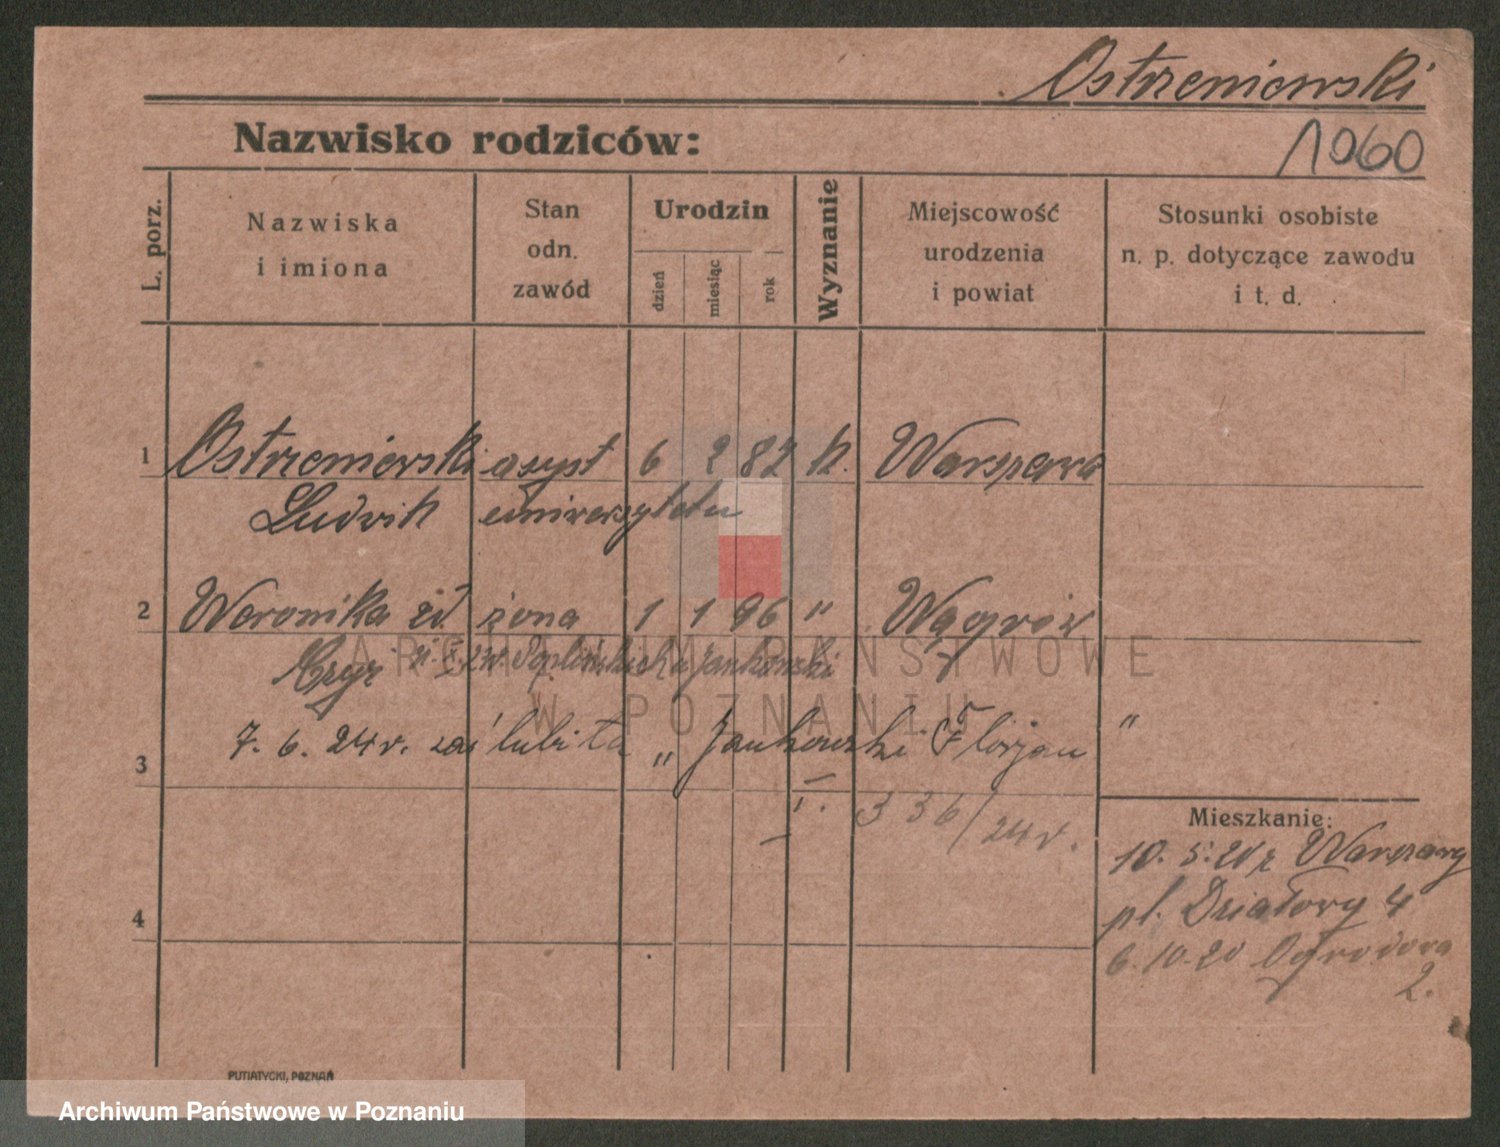 Ostrzeniewski
Nazwisko rodziców:
1060
L. porz.
Nazwiska
i imiona
Stan
odn.
zawód
Urodzin
dzień
miesiąc
rok
Wyznanie
Miejscowość
urodzenia
i powiat
Stosunki osobiste
n. p. dotyczące zawodu
i t. d.
1 Ostrzeniewski asyst 6 2 82 k. Warszawa
Ludwik uniwersytetu
2 Weronika żona 1 1 96 " Wągrów
Jankowski
7. 6. 24 r. zaślubiła " Jankowski Florjan "
3
I. 336/24 r.
Mieszkanie:
10. 5. 20 z Warszawy
pl. Działowy 4
4
6. 10. 20 Ogrodowa
2.
ARCHIWUM PAŃSTWOWE
W POZNANIU
PUTIATYCKI, POZNAŃ
Archiwum Państwowe w Poznaniu